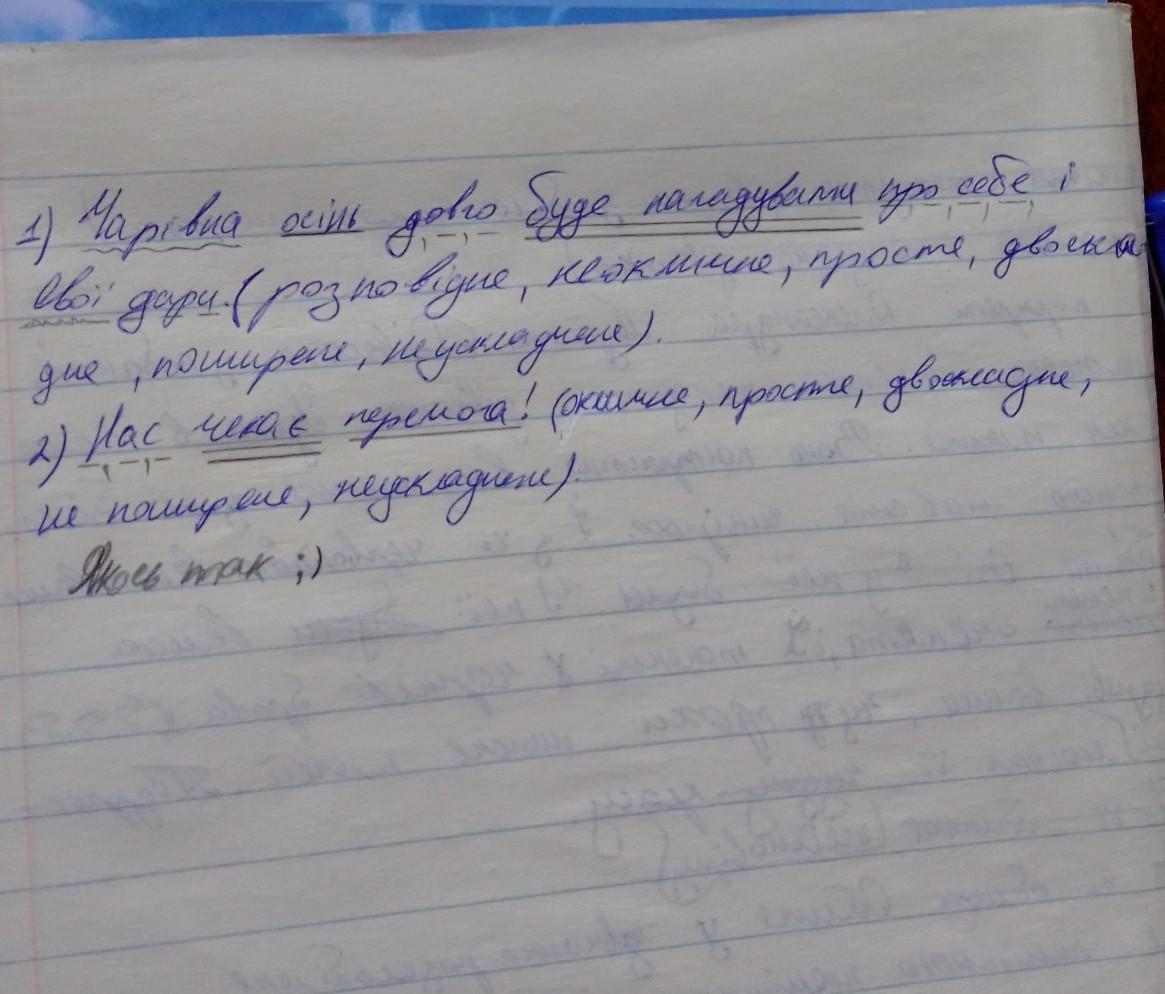 1) Чарівна осінь довго буде нагадувати про себе і
свої дари. (розповідне, неокличне, просте, двоскла
дне, поширене, неускладнене).
2) Нас чекає перемога! (окличне, просте, двоскладне,
не поширене, неускладнене).
Якось так ;)